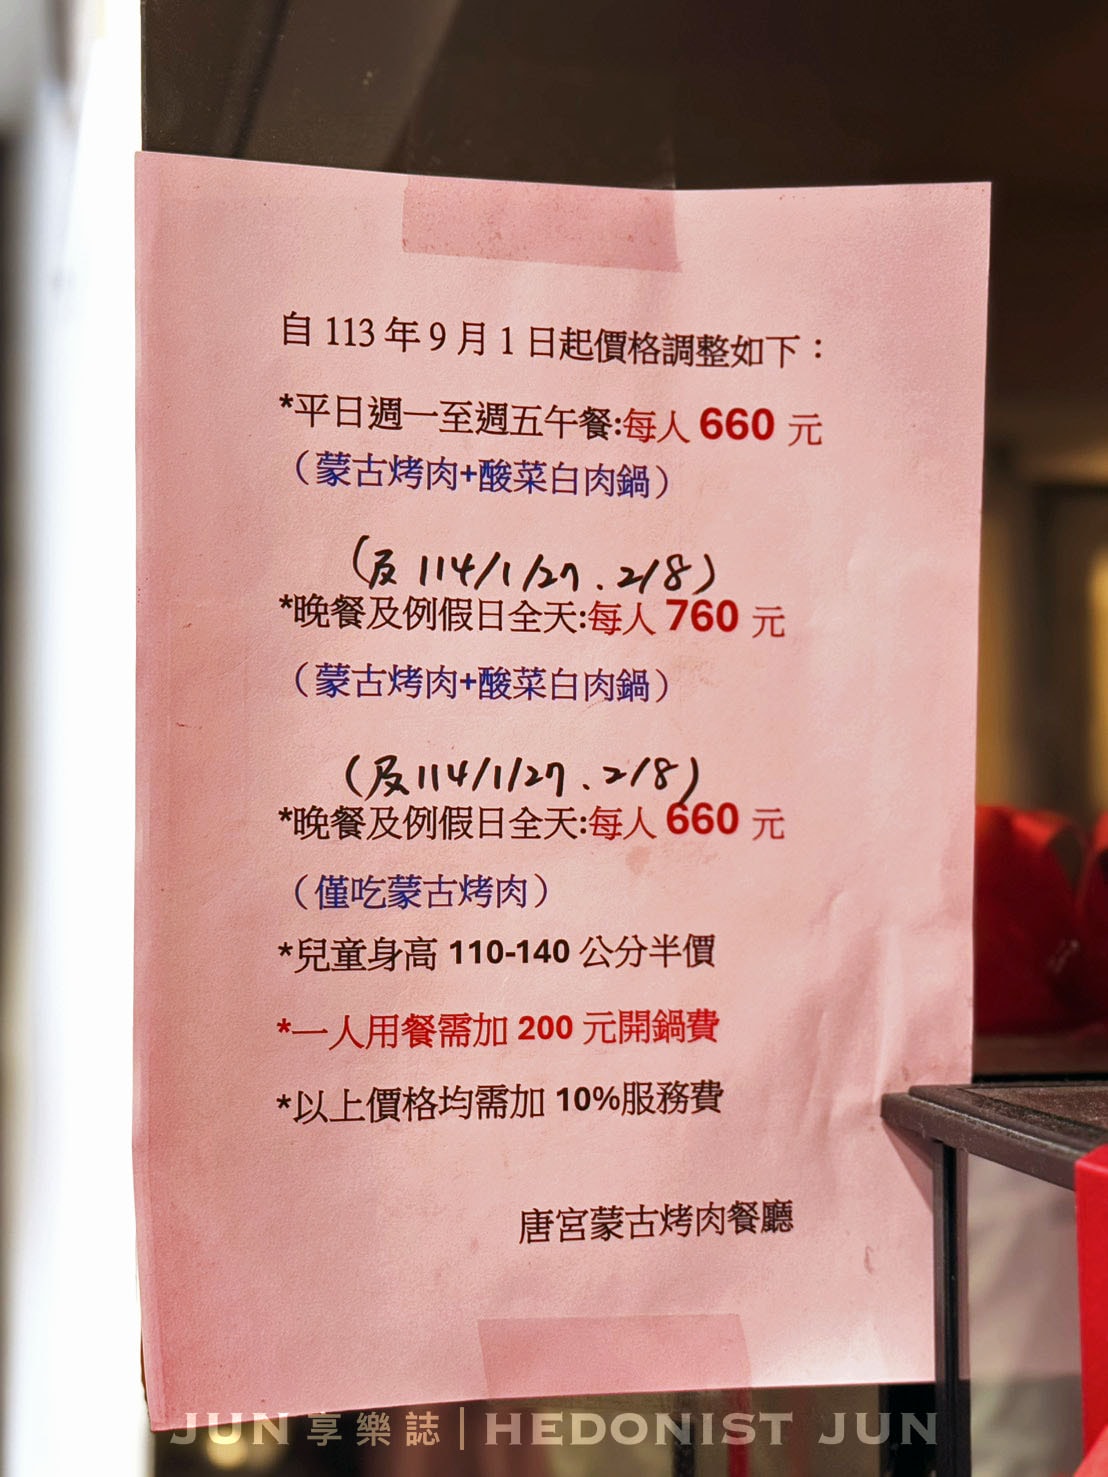 自 113 年 9 月 1 日起價格調整如下：
*平日週一至週五午餐:每人 660 元
（蒙古烤肉+酸菜白肉鍋）
(及 114/1/27 . 2/8)
*晚餐及例假日全天:每人 760 元
（蒙古烤肉+酸菜白肉鍋）
(及 114/1/27 . 2/8)
*晚餐及例假日全天:每人 660 元
（僅吃蒙古烤肉）
*兒童身高 110-140 公分半價
*一人用餐需加 200 元開鍋費
*以上價格均需加 10%服務費
唐宮蒙古烤肉餐廳
JUN享樂誌｜HEDONIST JUN